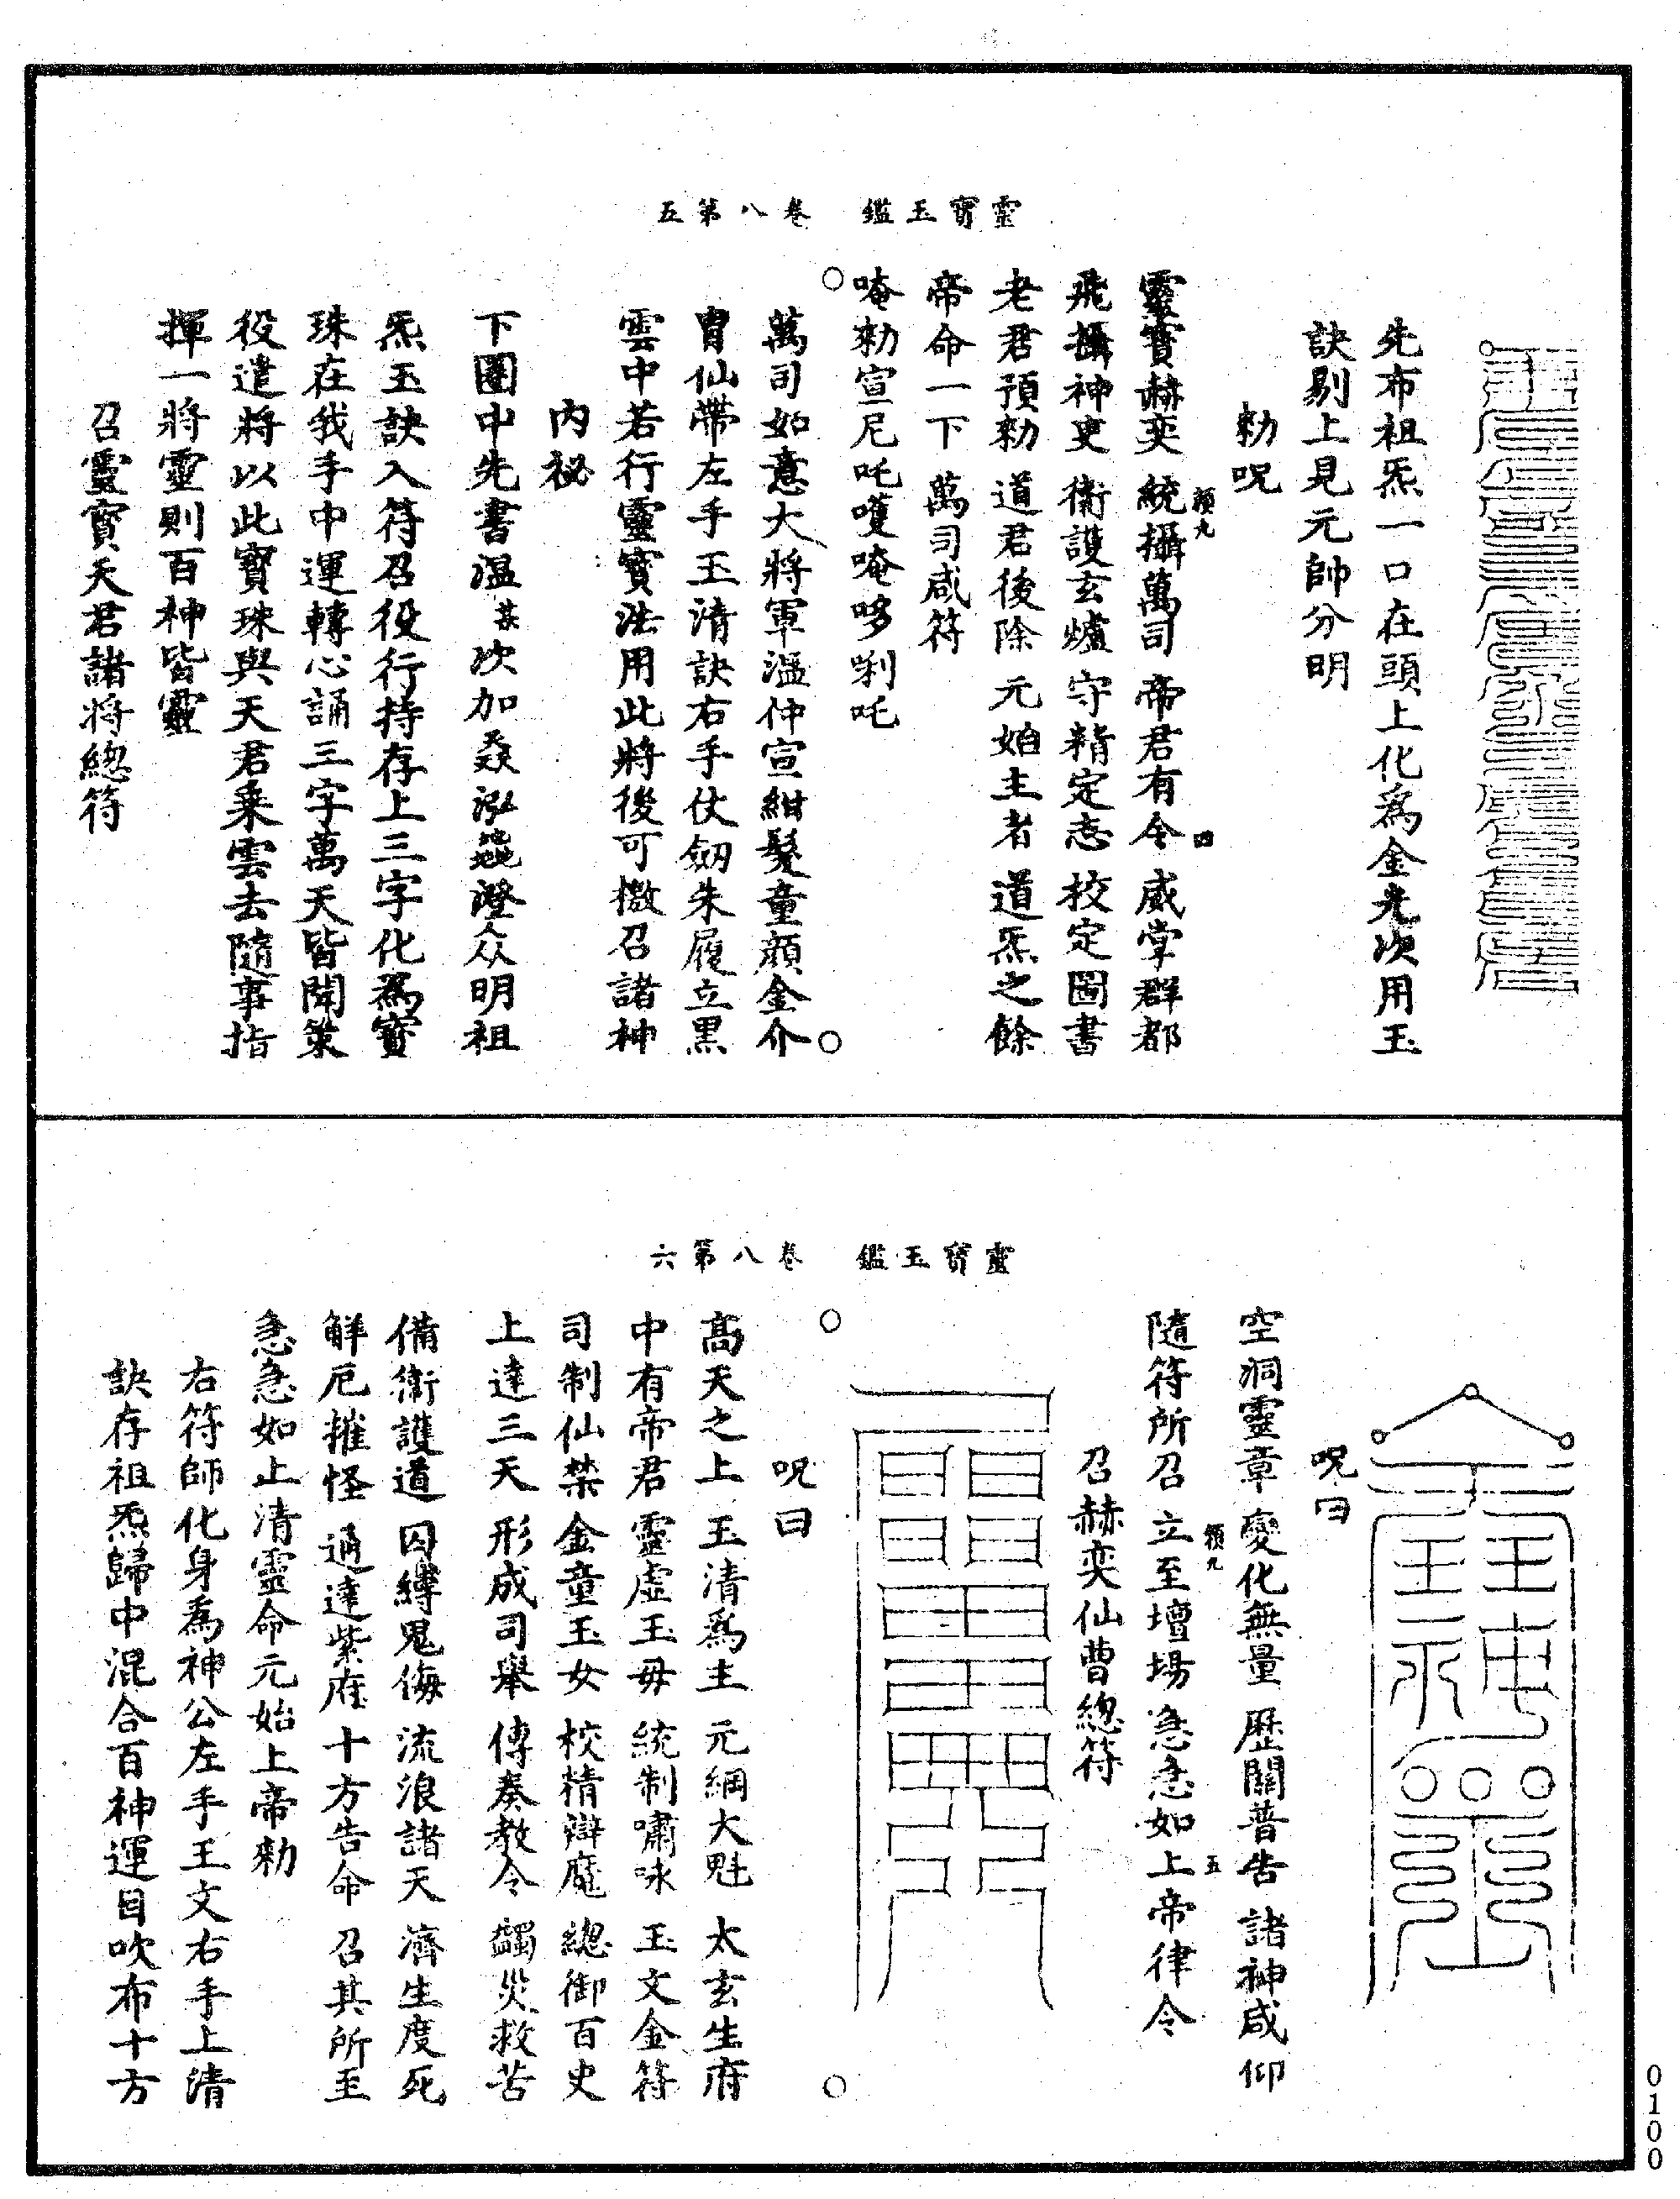 靈寶玉鑑　卷八第五
先布祖炁一口在頭上化爲金光次用玉
訣剔上見元帥分明
勑呪
靈寶赫奕　統攝萬司　帝君有令　威掌群都
飛攝神吏　衛護玄爐　守精定志　校定圖書
老君預勑　道君後除　元始主者　道炁之餘
帝命一下　萬司咸符
唵勑宣尼吒嚄唵哆唎吒
萬司如意大將軍溫仲宣紺髮童顏金介
冑仙帶左手玉清訣右手仗劒朱履立黑
雲中若行靈寶法用此將後可檄召諸神
內祕
下圈中先書温某次加猋泓蘤澄众明祖
炁玉訣入符召役行持存上三字化爲寶
珠在我手中運轉心誦三字萬天皆聞策
役遣將以此寶珠與天君乘雲去隨事指
揮一將靈則百神皆靈
召靈寶天君諸將總符
靈寶玉鑑　卷八第六
呪曰
空洞靈章　變化無量　歷關普告　諸神咸仰
隨符所召　立至壇場　急急如上帝律令
召赫奕仙曹總符
呪曰
高天之上　玉清爲主　元綱大魁　太玄生府
中有帝君　靈虛玉毋　統制嘯咏　玉文金符
司制仙禁　金童玉女　校精辯魔　總御百史
上達三天　形成司舉　傳奏教令　蠲災救苦
備衛護道　囚縛鬼侮　流浪諸天　濟生度死
解厄摧怪　通達紫府　十方告命　召其所至
急急如上清靈命元始上帝勑
右符師化身爲神公左手王文右手上清
訣存祖炁歸中混合百神運目吹布十方
0100